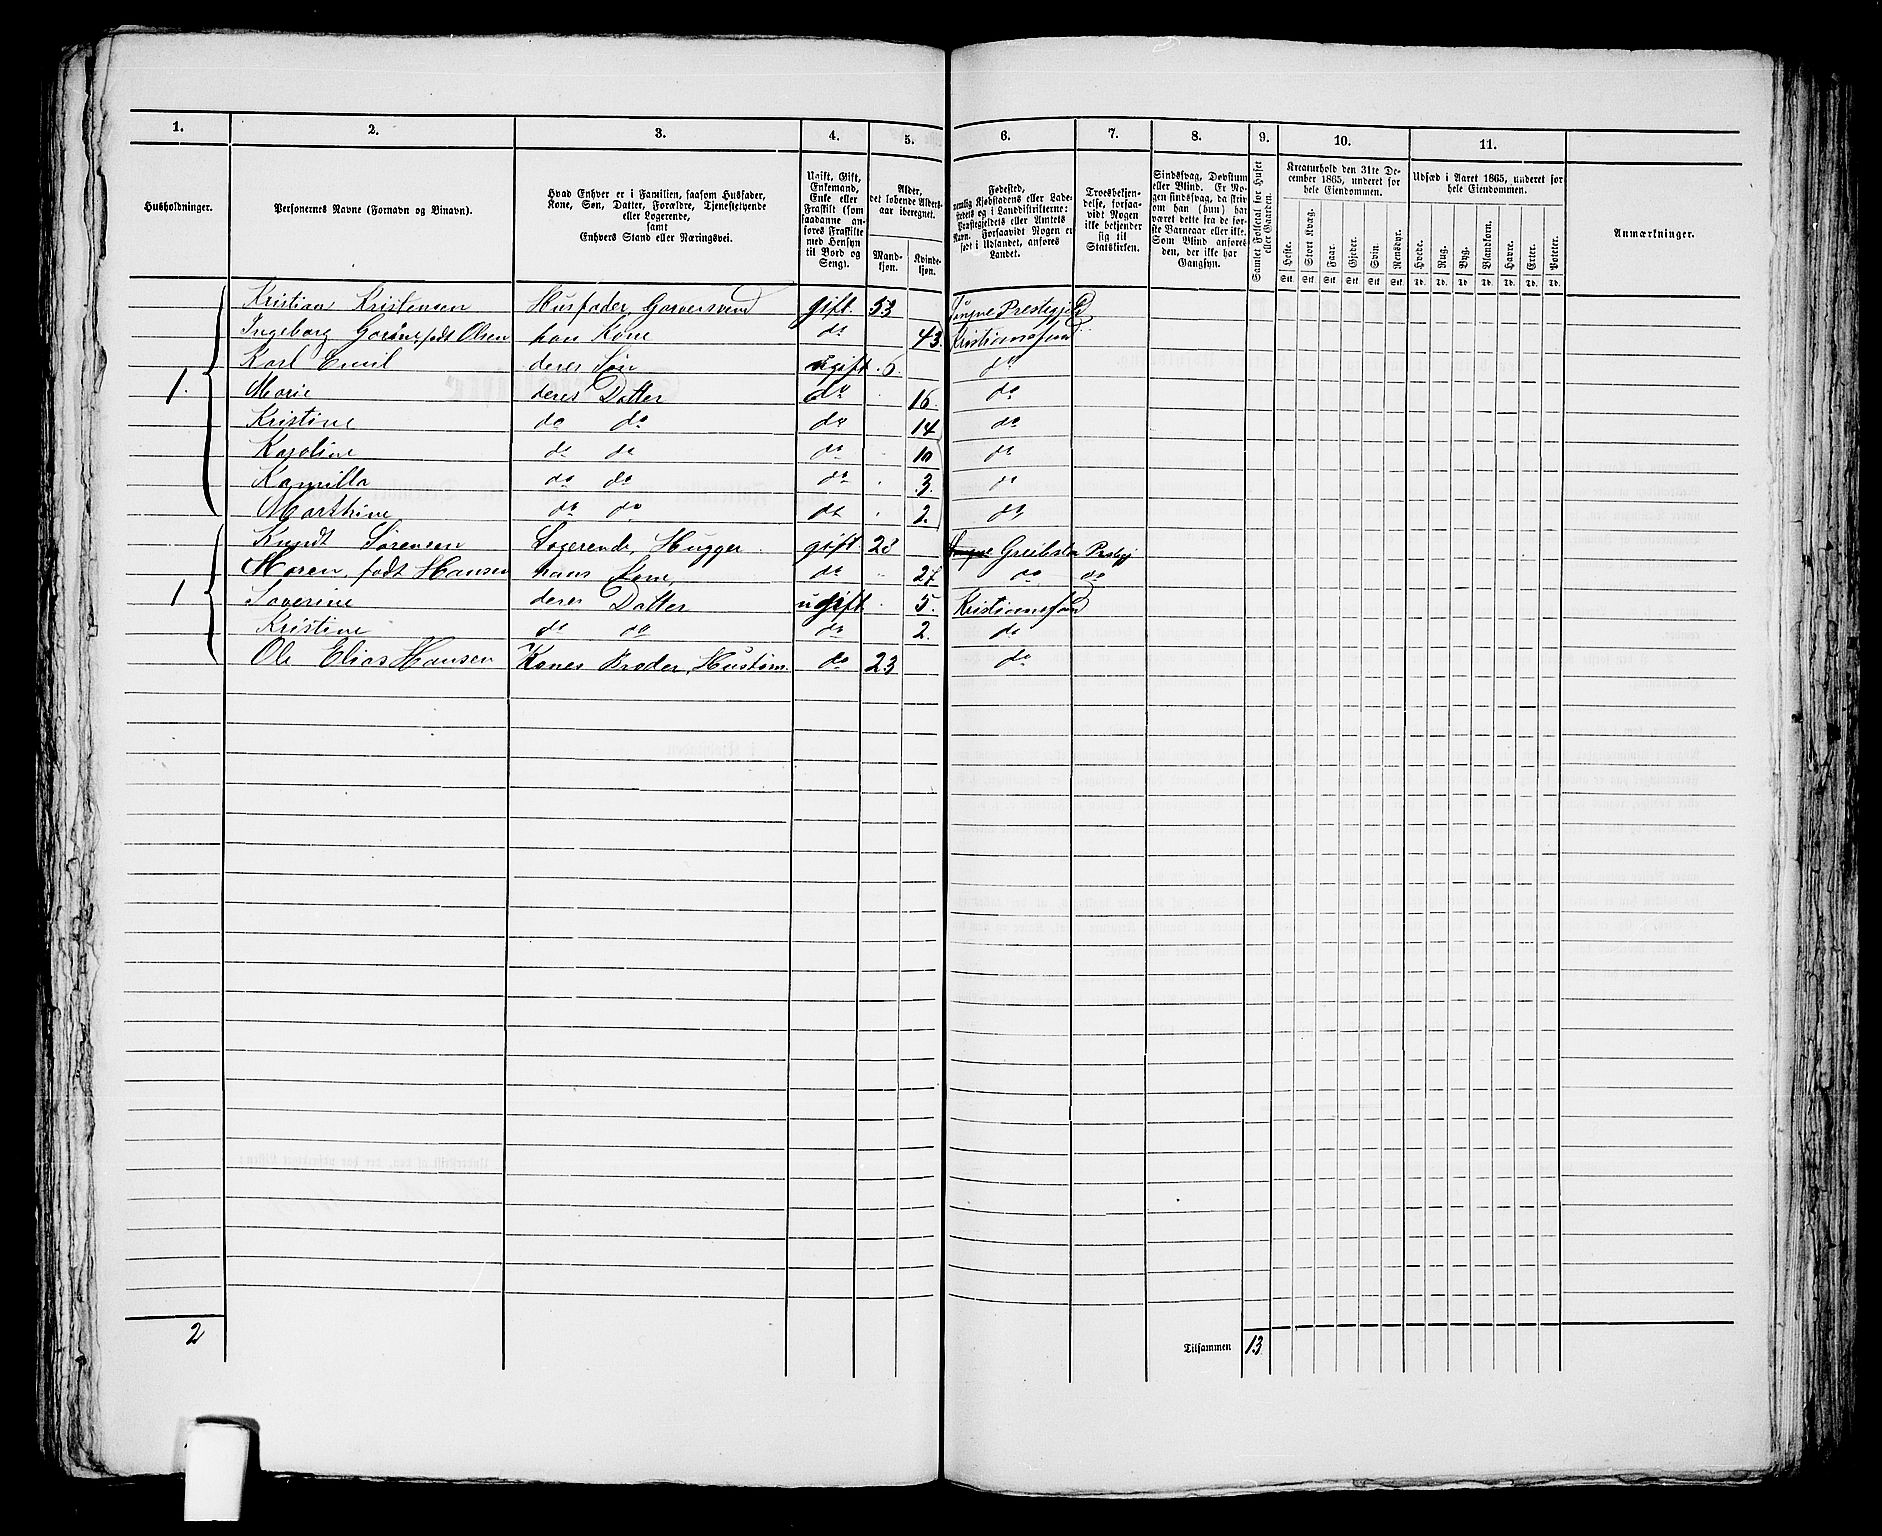 1. 2. 3. 4. 5. 6. 7. 8. 9. 10. 11.
Husholdninger.
Personernes Navne (Fornavn og Binavn).
Hvad Enhver er i Familien, saasom Husfader,
Kone, Søn, Datter, Forældre, Tjenestetyende
eller Logerende,
samt
Enhvers Stand eller Næringsvei.
Ugift, Gift,
Enkemand,
Enke eller
Fraskilt (som
saadanne an-
føres Fraskilte
med Hensyn
til Bord og
Seng).
Alder,
det løbende Alders-
aar iberegnet.
Mand-
kjøn.
Kvinde-
kjøn.
Fødested,
nemlig Kjøbstadens eller Lade-
stedets og i Landdistrikterne:
Præstegjeldets eller Amtets
Navn. Forsaavidt Nogen er
født i Udlandet, anføres
Landet.
Troesbekjen-
delse, forsaa-
vidt Nogen
ikke bekjender
sig til
Statskirken.
Sindssvag, Døvstum
eller Blind. Er No-
gen sindssvag, da skriv
om han (hun) har
været dette fra de før-
ste Barneaar eller ikke.
Som Blind anføres
den, der ikke har
Gangsyn.
Samlet Folketal for Huset
eller Gaarden.
Kreaturhold den 31te De-
cember 1865, underet for
hele Eiendommen.
Heste. Stort Kvæg. Faar. Gjeder. Svin. Rensdyr.
Stk. Stk. Stk. Stk. Stk. Stk.
Udsæd i Aaret 1865, underet for
hele Eiendommen.
Hvede. Rug. Byg. Blandkorn. Havre. Erter. Poteter.
Td. Td. Td. Td. Td. Td. Td.
Anmærkninger.
Kristian Kristensen Husfader, Garversvend gift. 53 Præstegjeld
Ingeborg født Olsen hans Kone do 43. Kristianssund
Karl Emil deres Søn ugift 6. do
1. Marie deres Datter do 16. do
Kristine do do do 14 do
Karoline do do do 10 do
Kamilla do do do 3. do
Marthine do do do 2. do
Knudt Sørensen Logerende, Hugger gift 28 Greibstø Prstgj
Maren, født Hansen hans Kone, do 27 do do
1. Saverine deres Datter ugift 5. Kristianssund
Kristine do do do 2. do
Ole Elias Hansen Kones Broder, Hustøm. do 23 do
2
Tilsammen 13